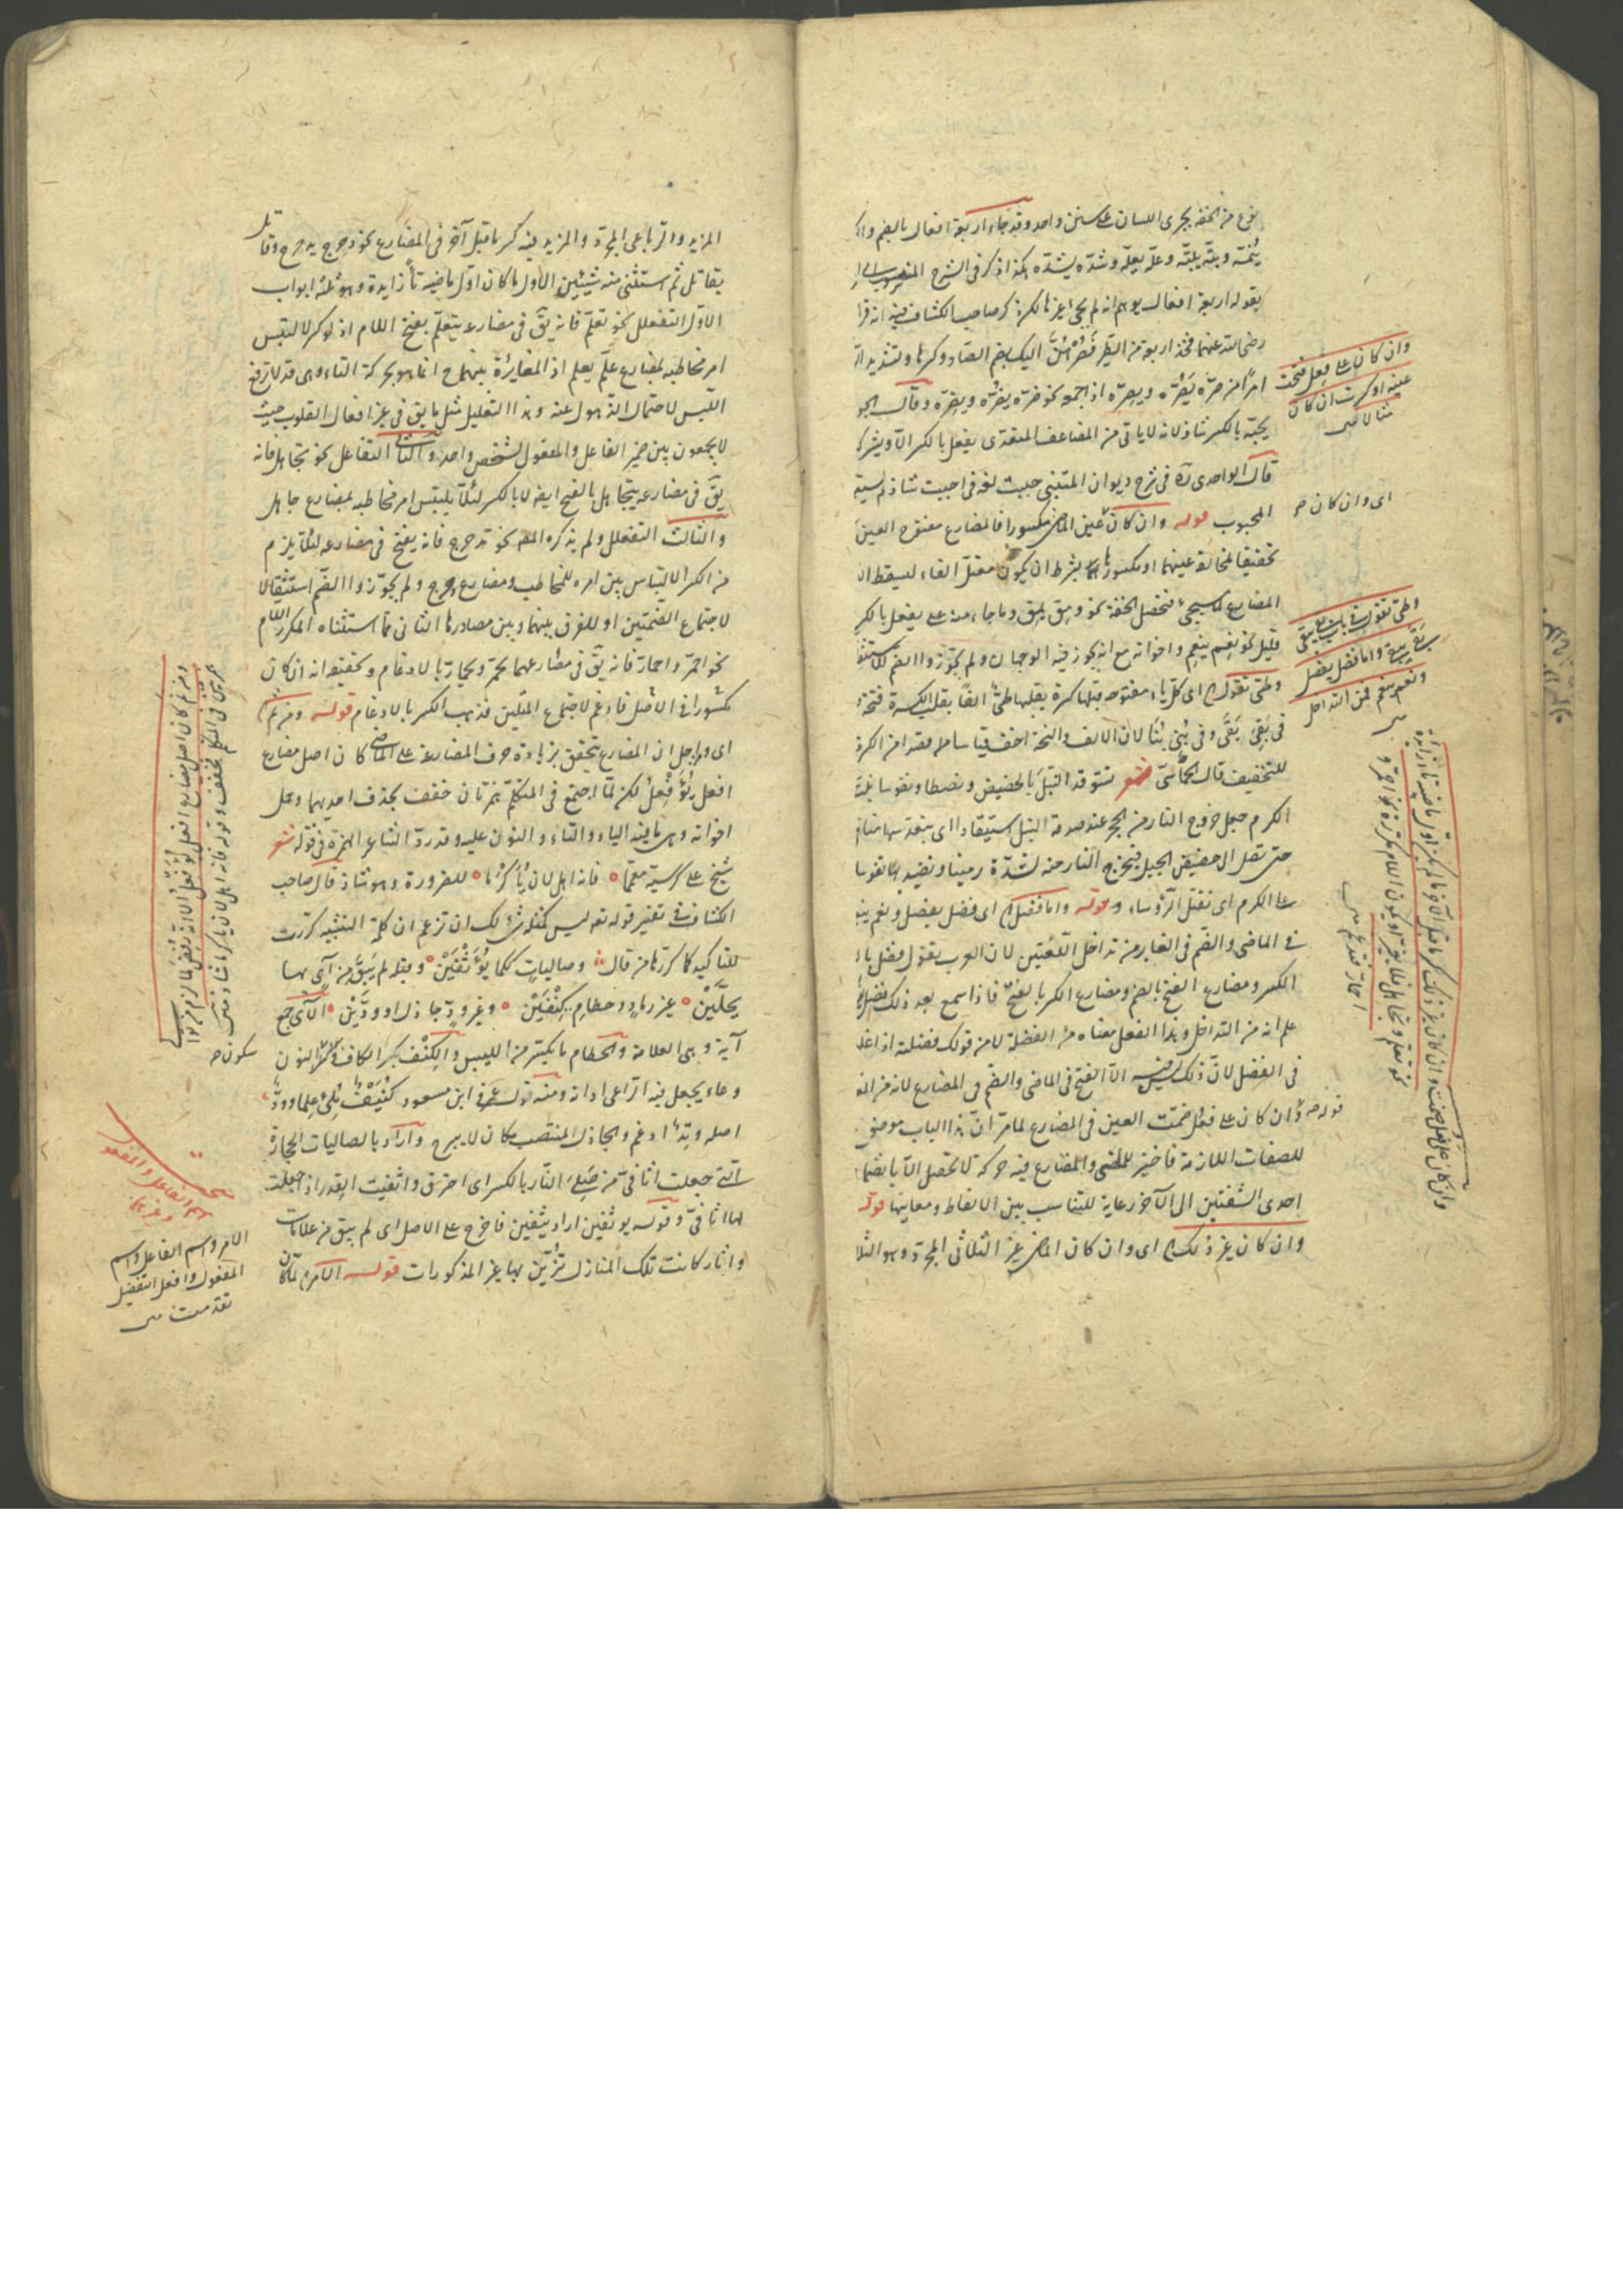 نوع من الخفة يجرى اللسان على سنن واحد وقد جاء اربعة افعال بالضم والكـ
ينمّه وبتّه يبتّه وعلّه يعلّه وشدّه يشدّه هكذا ذكر فى الشرح المنسوب الى
بقوله اربعة افعال يوهم انه لم يجئ غيرها لكن ذكر صاحب الكشاف فيه انه قرأ
رضى الله عنهما فخذ اربعة من الطير فصرّهنّ اليك بضم الصاد وكسرها وتشديد الـ
امرا من صرّه يصرّه ويصرّه اذا جمعه نحو ضرّه يضرّه ويضرّه وقال الجو
يحبّه بالكسر شاذ لانه لا ياتى من المضاعف المتعدى يفعل بالكسر الا ويشركـ
قال الواحدى ره فى شرح ديوان المتنبى حببت لغة فى احببت شاذ
المحبوب قوله وان كان عين الماضى مكسورا فالمضارع مفتوح العين
تحقيقا لمخالفة عينهما او مكسورها بشرط ان يكون معتل الفاء ليسقط الـ
المضارع كما سيجئ فتحصل الخفة نحو ومق يمق وما جاء منه على يفعل بالكسر
قليل نحو نعم ينعم واخواته مع انه يجوز فيه الوجهان ولم يجوّزوا الضم
وطئ تقول اى كل ياء مفتوحة قبلها كسرة يقلبها طئ الفا بقلب الكسرة فتحة
فى بقى بقى وفى بنى بنا لان الالف والفتحة اخف
للتخفيف قال الحماسى شعر نستوقد النبل بالحضيض ونصطاد نفوسا بنت
الكرم جعل خروج النار من الحجر عند صدمة النبل استيقادا اى
حتى تصل الى حضيض الجبل فتخرج النار منه لشدة رمينا ونصيد بها نفوسا
على الكرم اى نقتل الرؤساء قوله واما فضل اى فضل يفضل ونعم ينعم
فى الماضى والضم فى الغابر من تداخل اللغتين لان العرب يقول فضل
الكسر ومضارع الفتح بالضم ومضارع الكسر بالفتح فاذا سمع بعد ذلك
علم انه من التداخل وهذا الفعل معناه من الفضلة لا من قولك فضلته اذا غلـ
فى الفضل لان ذلك ليس فيه الا الفتح فى الماضى والضم فى المضارع
وان كان على فعل ضمّت العين فى المضارع لما مر ان هذا الباب موضو
للصفات اللازمة فاختير للماضى والمضارع فيه حركة لا تحصل الا بانضمام
احدى الشفتين الى الآخر رعاية للتناسب بين الالفاظ ومعانيها قوله
وان كان غير ذلك اى وان كان الماضى غير الثلاثى المجرد وهو الثلا
وان كان على فعل فتحت
عينه او كسرت ان كان
مثالا متن
اى وان كان صح
وطئ تقول فى باب بقى يبقى
بقى يبقى واما فضل يفضل
ونعم ينعم فمن التداخل
متن
قوله صح
وان كان على فعل ضمت وان كان غير ذلك كسر ما قبل الآخر ما لم يكن اول ماضيه تاء زائدة
نحو تعلم وتجاهل فلا يغير او يكون اللام مكررة نحو احمر و
احمار فتدغم متن
المزيد والرباعى المجرد والمزيد فيه كسر ما قبل آخره فى المضارع نحو دحرج يدحرج وقاتل
يقاتل ثم استثنى منه شيئين الاول ما كان اول ماضيه تاء زايدة وهو ثلثة ابواب
الاول التفعّل نحو تعلّم فانه يق فى مضارعه يتعلّم بفتح اللام اذ لو كسر لالتبس
امر مخاطبه بمضارع علّم يعلم اذ المغايرة بينهما ح انما هو بحركة التاء وهى قد لا ترفع
اللبس لاحتمال الذهول عنه وهذا التعليل مثل ما يق فى غير افعال القلوب حيث
لا يجمعون بين ضمير الفاعل والمفعول لشخص واحد والثانى التفاعل نحو تجاهل فانه
يق فى مضارعه يتجاهل بالفتح ايضا لا بالكسر لئلا يلتبس امر مخاطبه بمضارع جاهل
والثالث التفعلل ولم يذكره المص نحو تدحرج فانه يفتح فى مضارعه لئلا يلزم
من الكسر الالتباس بين امره للمخاطب ومضارع دحرج ولم يجوّزوا الضم استثقالا
لاجتماع الضمتين او للفرق بينهما وبين مصادرها الثانى مما استثناه المكرر اللام
نحو احمرّ واحمارّ فانه يق فى مضارعهما يحمرّ ويحمارّ بالادغام وتحقيقه انه ان كان
مكسورا فى الاصل فادغم لاجتماع المثلين فذهب الكسر بالادغام قوله ومن ثم
اى ولاجل ان المضارع يتحقق بزيادة حرف المضارعة على الماضى كان اصل مضارع
افعل يؤفعل لكن لما اجتمع فى المتكلم همزتان خفف بحذف احديهما وحمل
اخواته وهى ما فيه الياء والتاء والنون عليه وقد ردّ الشاعر الهمزة فى قوله شعر
شيخ على كرسيه معمّما فانه اهل لان يؤكرما للضرورة وهو شاذ قال صاحب
الكشاف فى تفسير قوله تعالى ليس كمثله شئ لك ان تزعم ان كلمة التشبيه كررت
للتاكيد كما كررها من قال وصاليات ككما يؤثفين وقبله لم يبق من آى بها
يحلّين غير رماد وحطام كنفين وغير ودّ جاذل او ودّين الآى جمع
آية وهى العلامة والحطام ما يكسر من اليبس والكنف بكسر الكاف وسكون النون
وعاء يجعل فيه الراعى اداته ومنه قول عمر فى ابن مسعود كنيف ملئ علما وودّ
اصله وتد ادغم والجاذل المنتصب مكان لا يبرح واراد بالصاليات الحجارة
التى جعلت اثافى من صلى النار بالكسر اى احترق واثفيت القدر اذا جعلت
لها اثافى وقوله يؤثفين اراد يثفين فاخرج على الاصل اى لم يبق من علامات
وآثار كانت تلك المنازل تزين بها غير المذكورات قوله الامر لما كان
سكون صح
ومن ثم كان اصل مضارع افعل يؤفعل الا انه رفض لما لزم من توالى
همزتين فى المتكلم فخفف وقوله فانه اهل لان يؤكرما شاذ متن
اسم الفاعل والمفعول
وغيرهما
الامر واسم الفاعل واسم
المفعول وافعل التفضيل
تقدمت متن